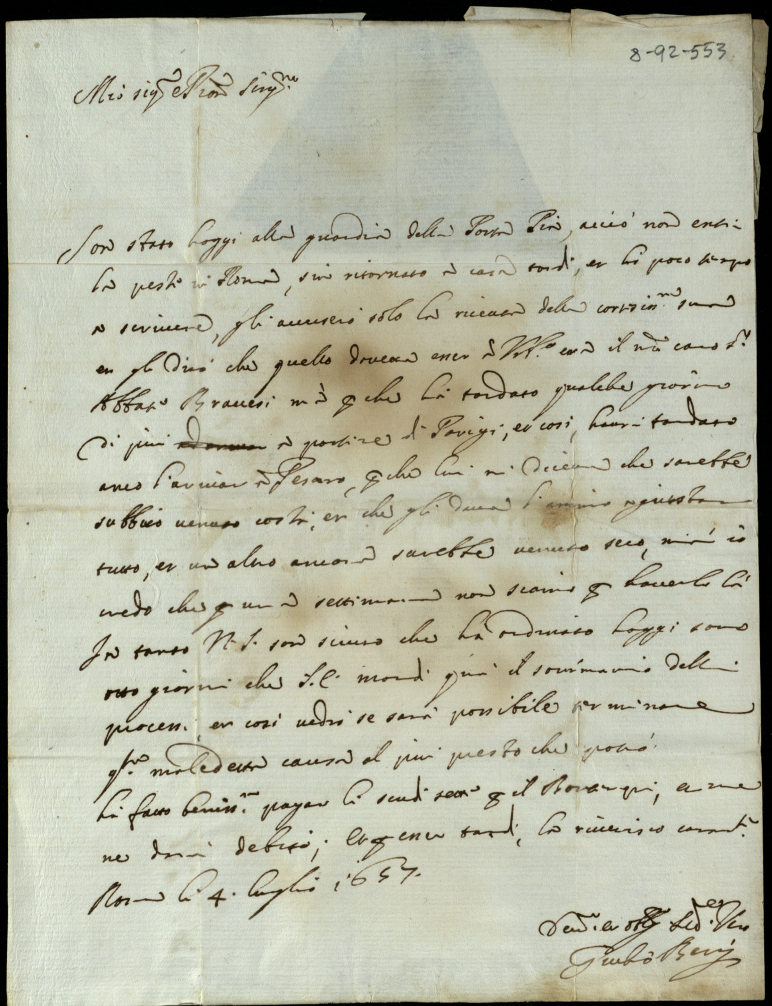 8-92-553
Mio sig.re e Pron Sing.mo
Son stato hoggi alla guardia della Porta Pia, acciò non entri
la peste in Roma, sin ritornato à casa tardi, et hò poco tempo
a scrivere, gli accuserò solo la ricevuta della cortesiss.ma sua
et gli dirò che quello doveva esser à era il mio caro S.r
Abbate Bravesi mà che hà tardato qualche giorno
di più à partire di Parigi, et così, haurà tardato
anco l'arrivar à Pesaro, che lui mi diceva che sarebbe
subbito venuto costì, et che gli dava l'animo agiustar
tutto, et un altro ancora sarebbe venuto seco, mà io
credo che una settimana non siamo haverlo là
In tanto N. S. son sicuro che hà ordinato hoggi sono
otto giorni che S. E. mandi quà il sommario delli
processi, et così vedrò se sarà possibile terminare
q.ta maledetta causa al più presto che potrò
hà fatto beniss.o pagar li scudi sette il et me
ne darà debito; Et esser tardi, la riverisco
Roma li 4. luglio 1657.